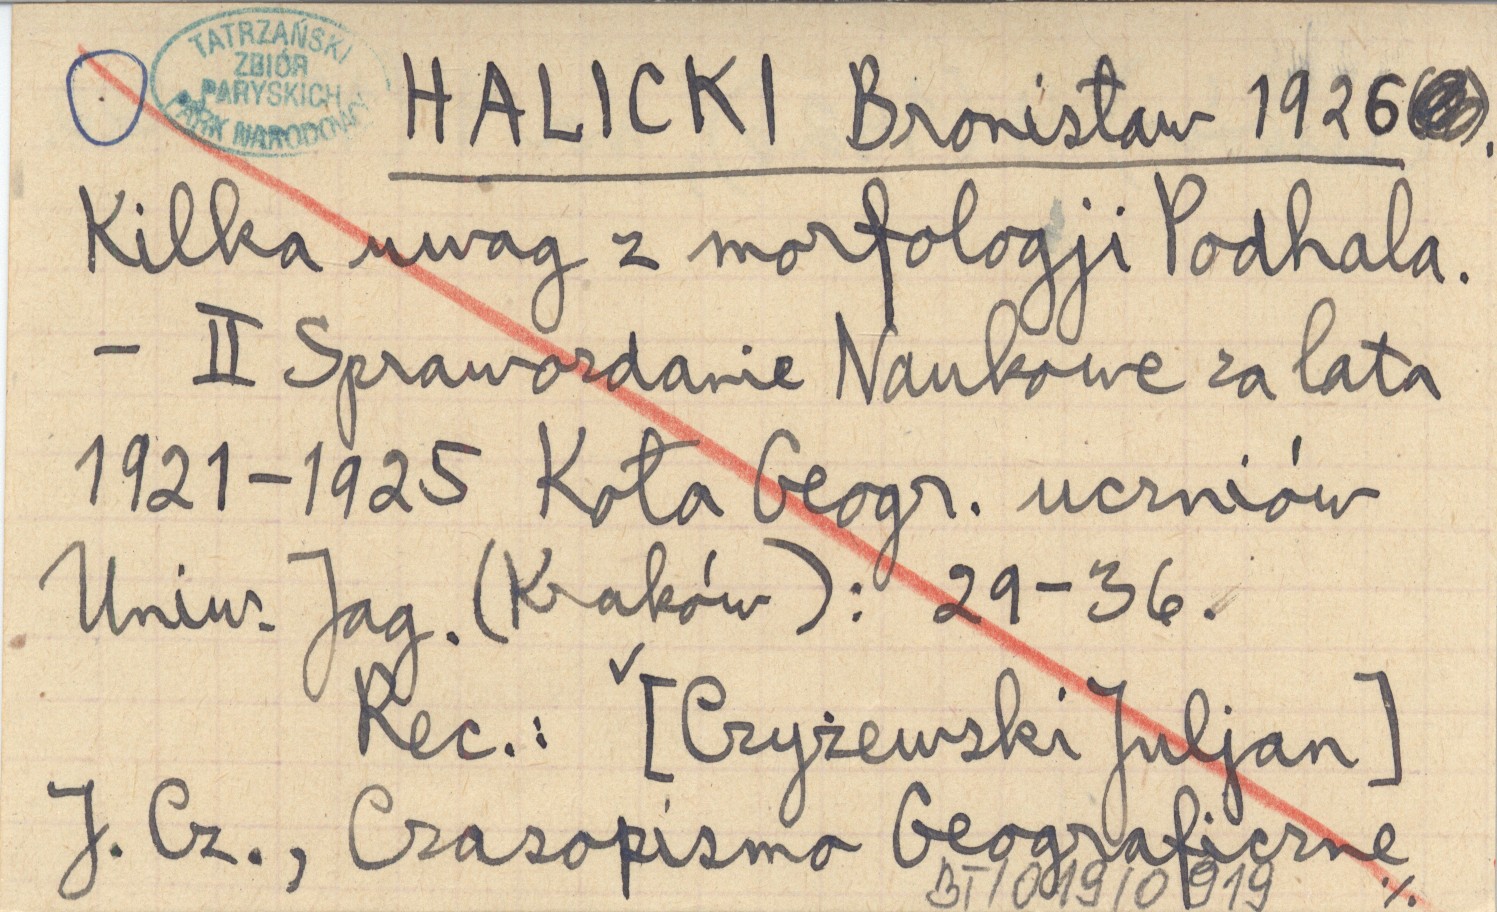 TATRZAŃSKI
ZBIÓR
PARYSKICH
PARK NARODOWY
HALICKI Bronisław 1926.
Kilka uwag z morfologji Podhala.
- II Sprawozdanie Naukowe za lata
1921-1925 Koła Geogr. uczniów
Uniw. Jag. (Kraków): 29-36.
Rec.: [Czyżewski Juljan]
J. Cz., Czasopismo Geograficzne
BT/019/0919 ·/.